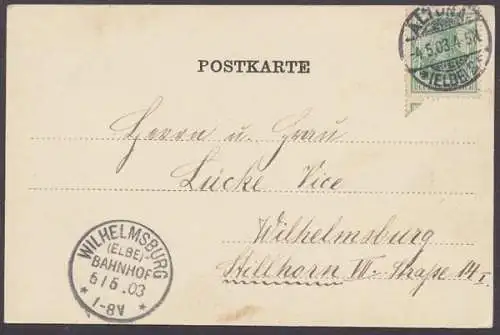 ALTONA
4.5.03.4-5N.
*(ELBE)
POSTKARTE
Herrn u. Frau
Lücke Vice
Wilhelmsburg
Stillhorn VII. Straße 14 I
WILHELMSBURG
(ELBE)
BAHNHOF
5/5.03
* 1-8V *